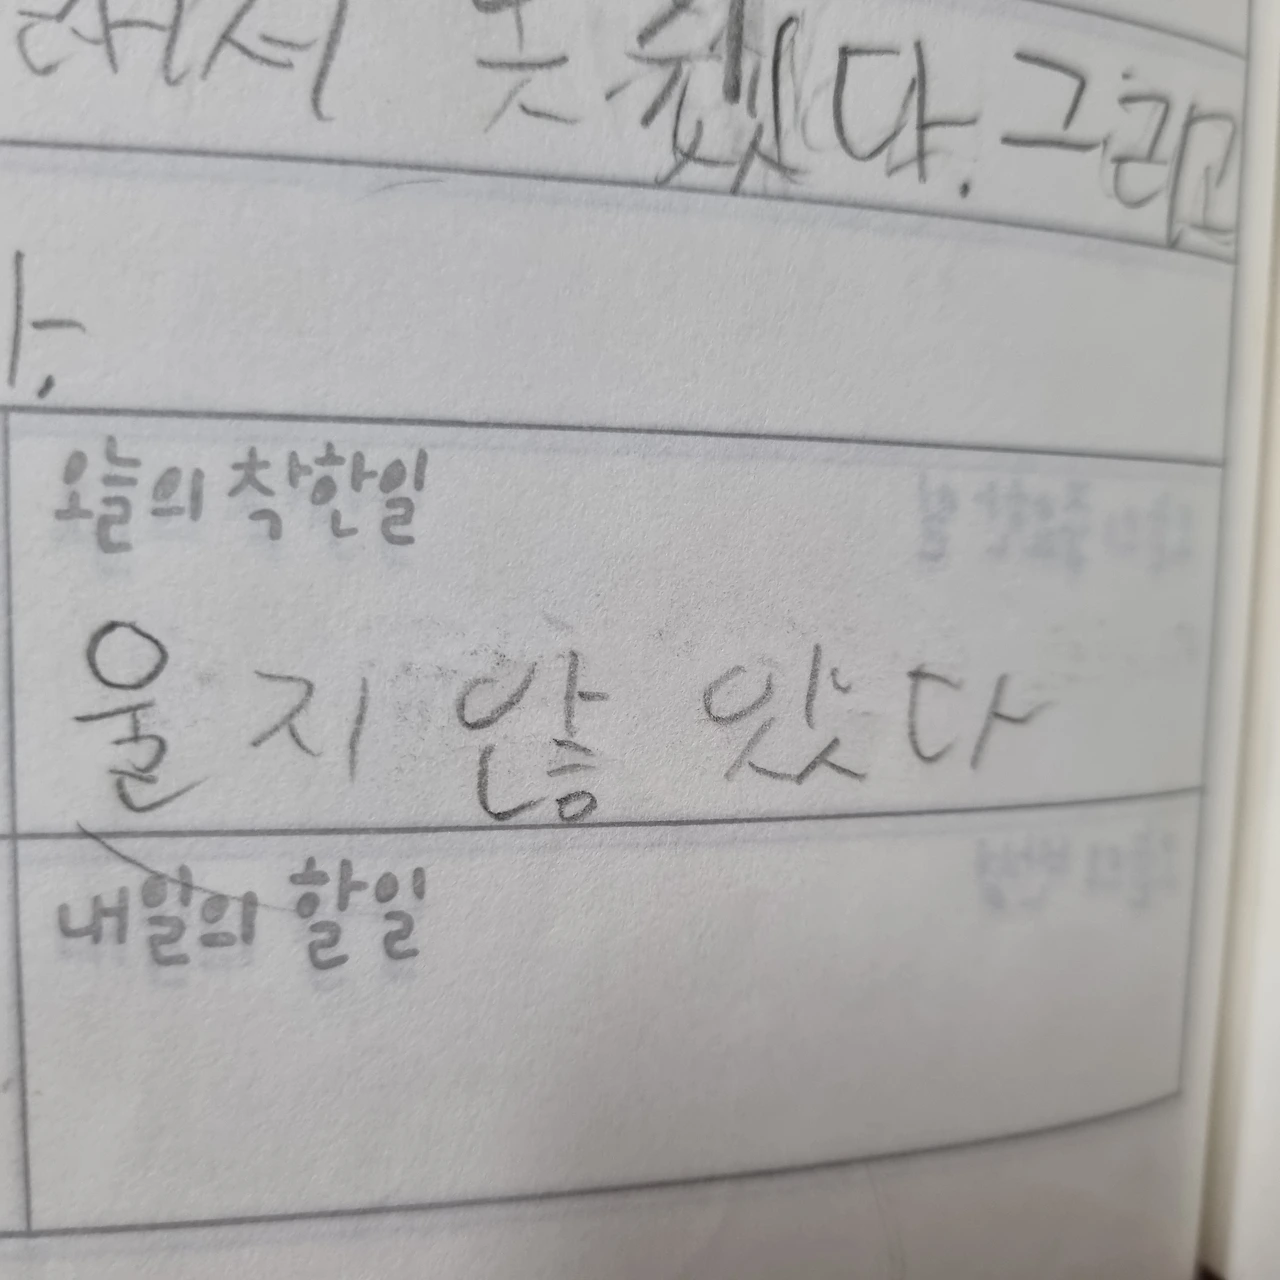 못 췄다. 그리고
오늘의 착한일
울지 않았다
내일의 할일